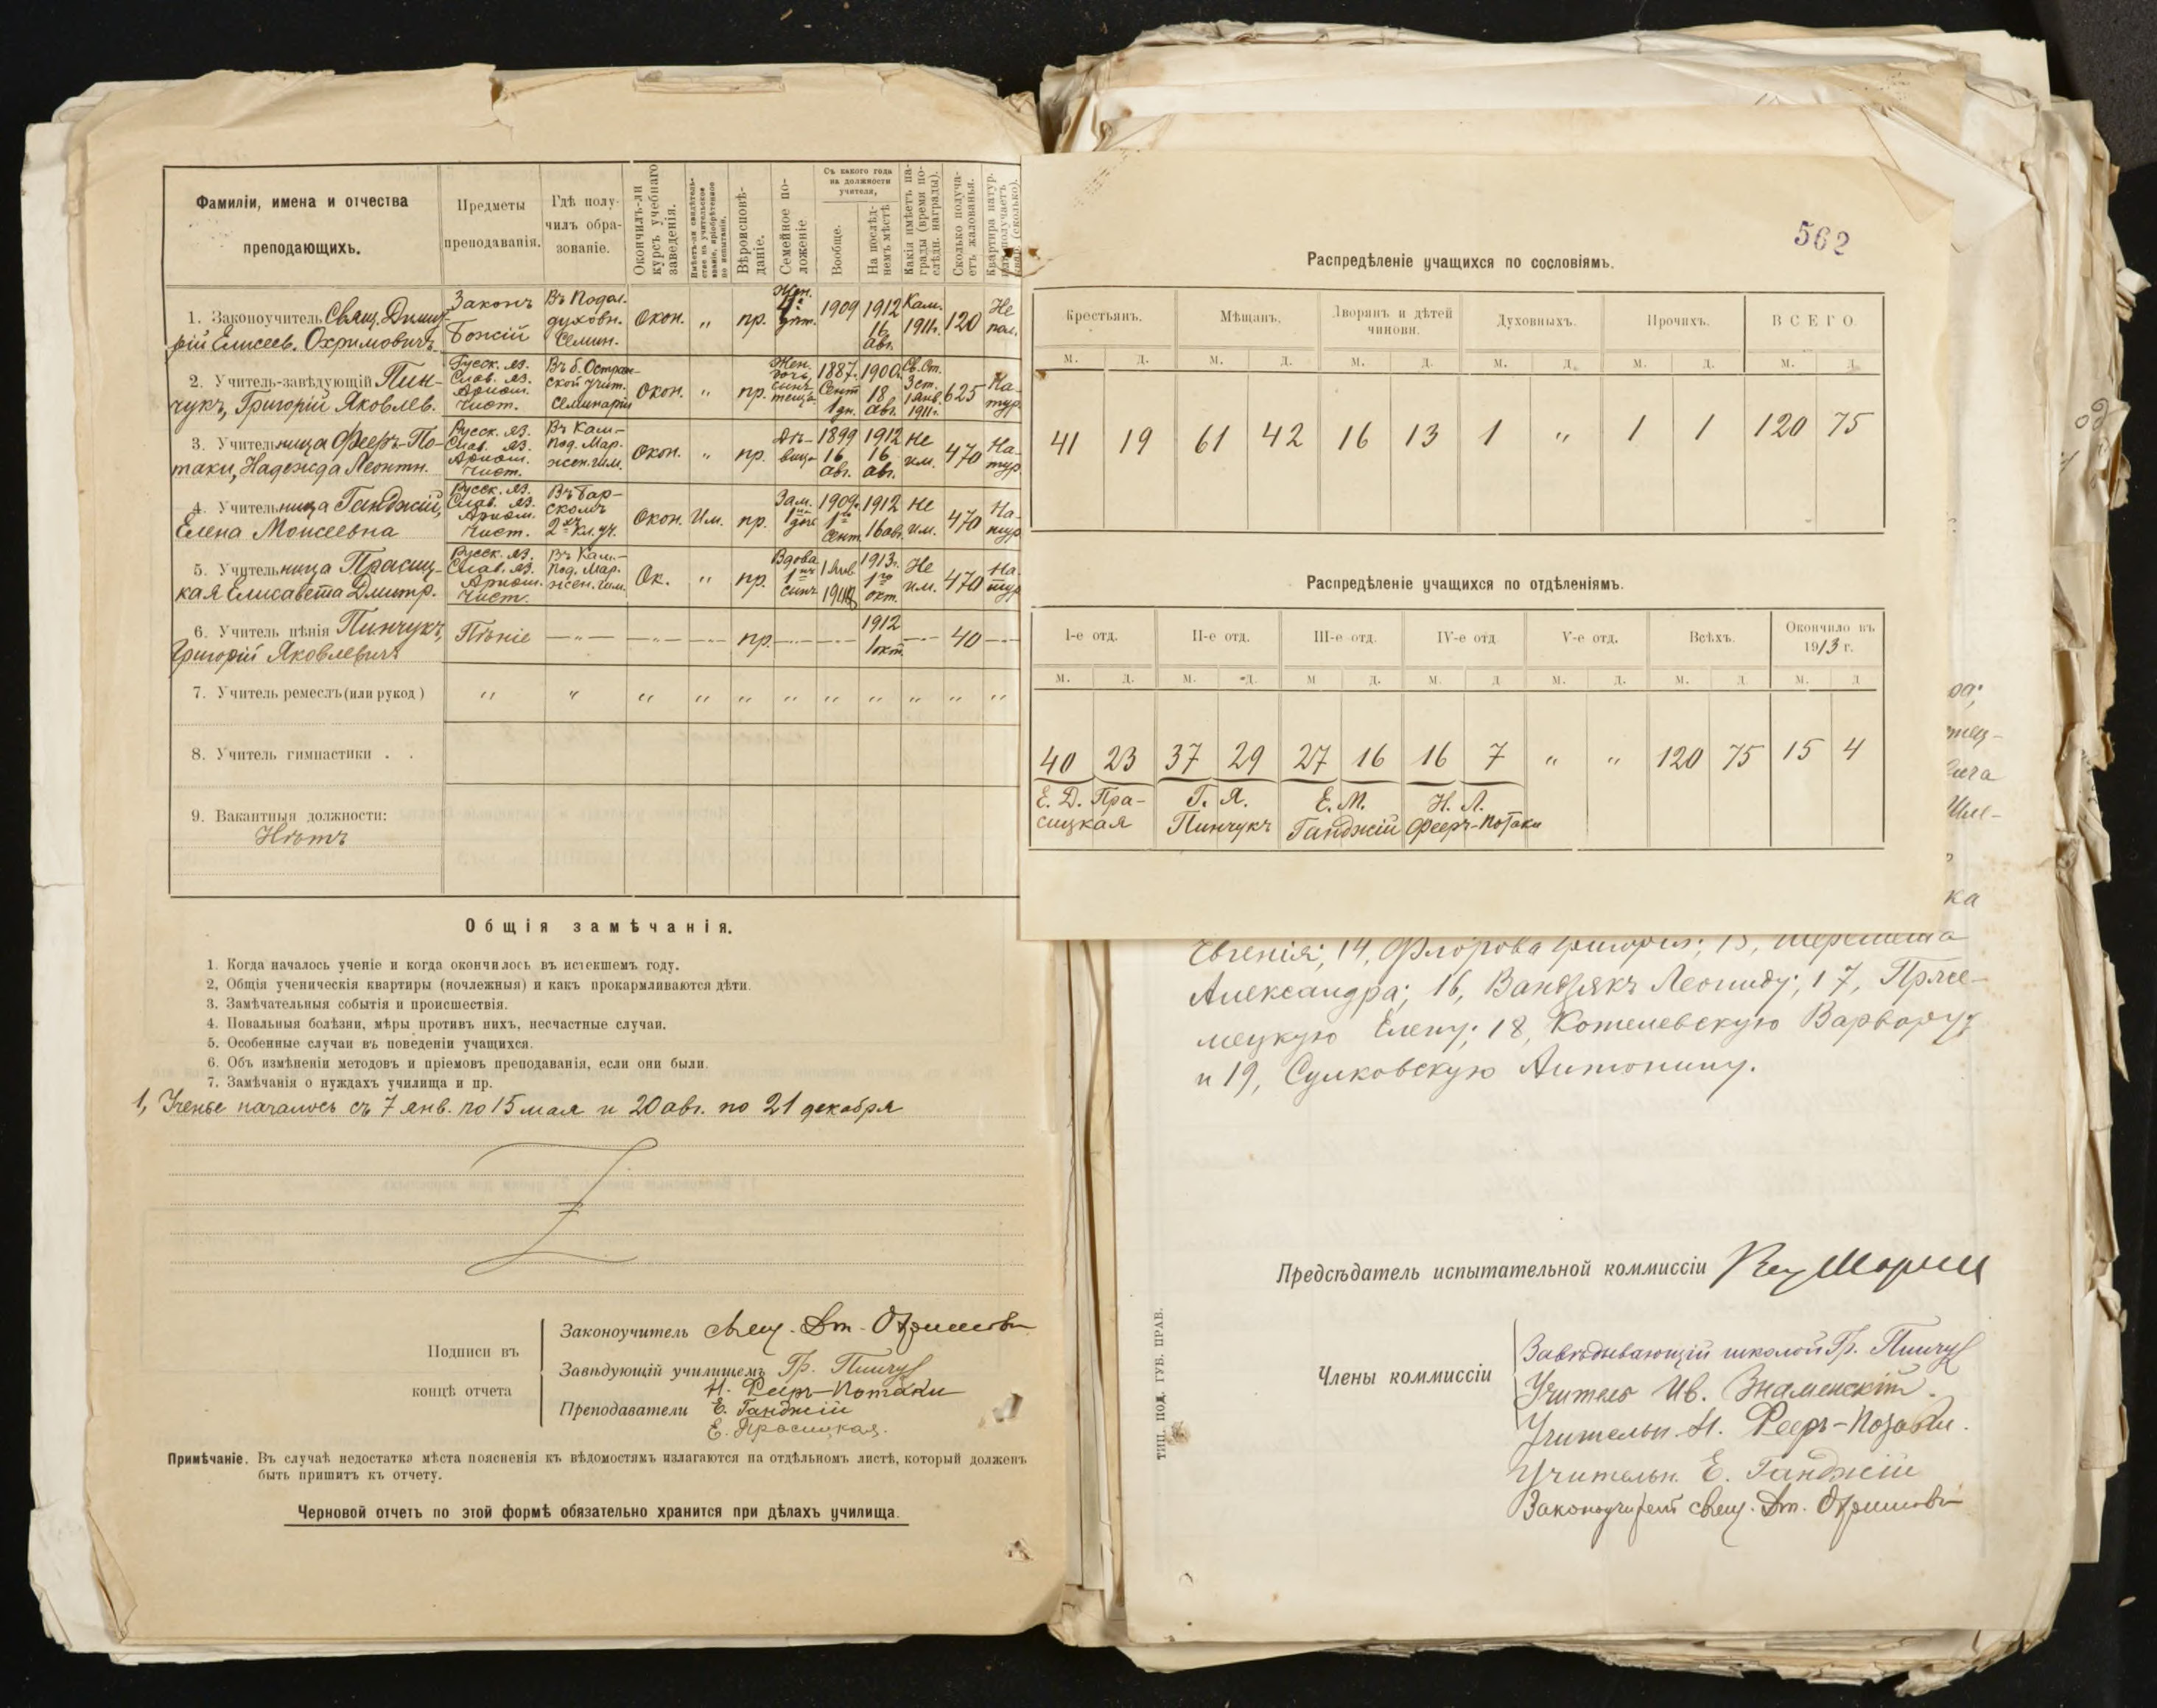 Фамиліи, имена и отчества преподающихъ.
Предметы преподаванія.
Гдѣ получилъ образованіе.
Окончилъ-ли курсъ учебнаго заведенія.
Имѣетъ-ли свидѣтельство на учительское званіе, пріобрѣтенное по испытанію.
Вѣроисповѣданіе.
Семейное положеніе
Съ какого года на должности учителя,
Вообще.
На послѣднемъ мѣстѣ
Какія имѣетъ награды (время послѣдн. награды).
Сколько получаетъ жалованья.
Квартира натур.
1. Законоучитель Свящ. Димитрій Елисеев. Охримовичъ
Законъ Божій
Въ Подол. духовн. Семин.
Окон. „ пр.
Жен.
1909
1912 16 авг.
Кам. 1911г.
120
Не пол.
2. Учитель-завѣдующій Пинчукъ, Григорій Яковлев.
Русск. яз. Слав. яз. Ариѳм. Чист.
Въ б. Острожской учит. Семинаріи
Окон. „ пр.
Жен. дочь, сынъ, теща
1887. Сент 1 дн.
1900г. 18 авг.
Св. Ст. 3 ст. 1 янв. 1911г.
625
Натур
3. Учительница Фееръ-Потаки, Надежда Леонтн.
Русск. яз. Слав. яз. Ариѳм. Чист.
Въ Кам-Под. Мар. жен. гим.
Окон. „ пр.
Дѣвица
1899 16 авг.
1912 16 авг.
Не им.
470
Натур
4. Учительница Ганджій, Елена Моисеевна
Русск. яз. Слав. яз. Ариѳм. Чист.
Въ Барскомъ 2хъ кл. уч.
Окон. Им. пр.
Зам. 1 дочь
1909г. 1го Сент.
1912 16 авг.
Не им.
470
Натур
5. Учительница Прасицкая Елисавета Дмитр.
Русск. яз. Слав. яз. Ариѳм. Чист.
Въ Кам.-Под. Мар. жен. гим.
Ок. „ пр.
Вдова 1нъ сынъ
1 Янв
1913г. 1го окт.
Не им.
470
Натур
6. Учитель пѣнія Пинчукъ, Григорій Яковлевичъ
Пѣніе —„— —„— —„— пр. —„— —„— 1912 1 окт. —„— 40 —„—
7. Учитель ремеслъ (или рукод) „ „ „ „ „ „ „ „ „ „ „
8. Учитель гимнастики . .
9. Вакантныя должности:
Нѣтъ
Общія замѣчанія.
1. Когда началось ученіе и когда окончилось въ истекшемъ году.
2, Общія ученическія квартиры (ночлежныя) и какъ прокармливаются дѣти.
3. Замѣчательныя событія и происшествія.
4. Повальныя болѣзни, мѣры противъ нихъ, несчастные случаи.
5. Особенные случаи въ поведеніи учащихся.
6. Объ измѣненіи методовъ и пріемовъ преподаванія, если они были.
7. Замѣчанія о нуждахъ училища и пр.
1, Ученье началось съ 7 янв. по 15 мая и 20 авг. по 21 декабря
Подписи въ концѣ отчета
Законоучитель свящ. Дм. Охримови
Завѣдующій училищемъ Гр. Пинчук
Преподаватели Н. Фееръ-Потаки
Е. Ганджій
Е. Прасицкая.
Примѣчаніе. Въ случаѣ недостатка мѣста поясненія къ вѣдомостямъ излагаются на отдѣльномъ листѣ, который долженъ
быть пришитъ къ отчету.
Черновой отчетъ по этой формѣ обязательно хранится при дѣлахъ училища.
562
Распредѣленіе учащихся по сословіямъ.
Крестьянъ. Мѣщанъ. Дворянъ и дѣтей чиновн. Духовныхъ. Прочихъ. ВСЕГО.
М. Д. М. Д. М. Д. М. Д. М. Д. М. Д.
41 19 61 42 16 13 1 „ 1 1 120 75
Распредѣленіе учащихся по отдѣленіямъ.
I-е отд. II-е отд. III-е отд. IV-е отд V-е отд. Всѣхъ. Окончило въ 1913 г.
М. Д. М. Д. М Д. М. Д М. Д. М. Д М. Д
40 23 37 29 27 16 16 7 „ „ 120 75 15 4
Е. Д. Прасицкая
Г. Я. Пинчукъ
Е. М. Ганджій
Н. Л. Фееръ-Потаки
Евгенія; 14, Флорова Григорія; 15, Шеремета
Александра; 16, Вандзякъ Леониду; 17, Прже-
мецкую Елену; 18, Котелевскую Варвару;
и 19, Сулковскую Антонину.
Предсѣдатель испытательной коммиссіи
Члены коммиссіи
Завѣдывающій школой Гр. Пинчук
Учитель Ив. Знаменскій.
Учительн. Н. Фееръ-Потаки.
Учительн. Е. Ганджій
Законоучитель свящ. Дм. Охримови
ТИП. ПОД. ГУБ. ПРАВ.